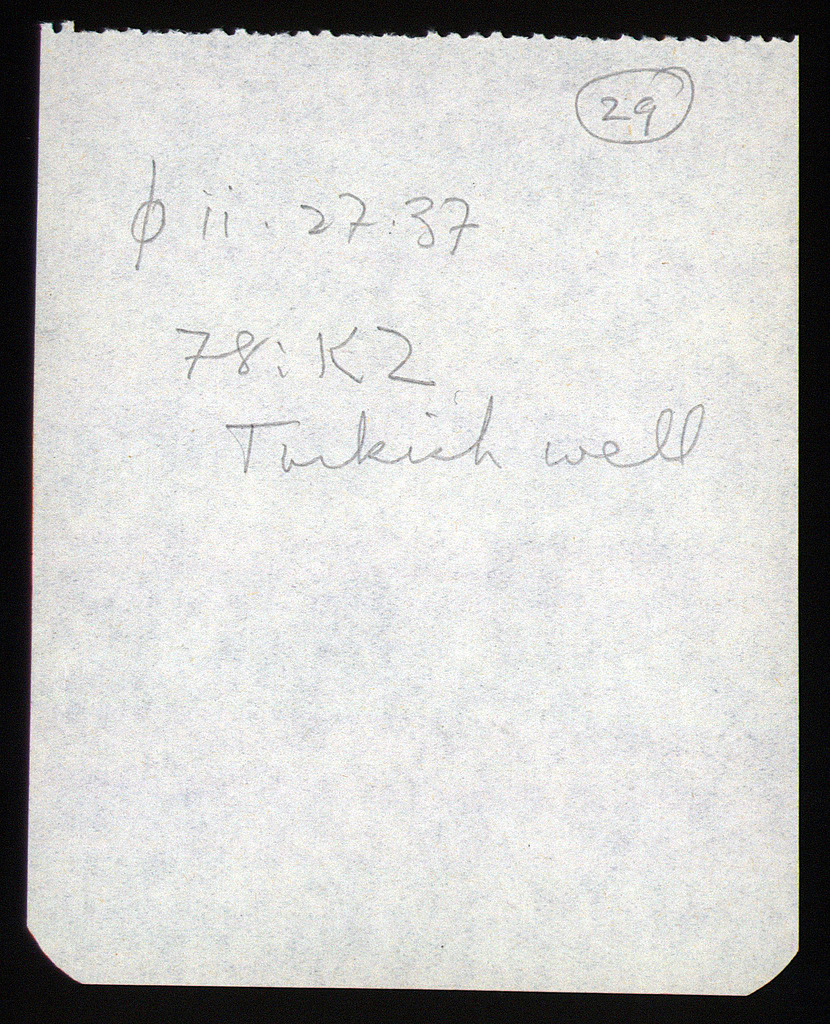 29
φ ii. 27.37
78: KZ
Turkish well